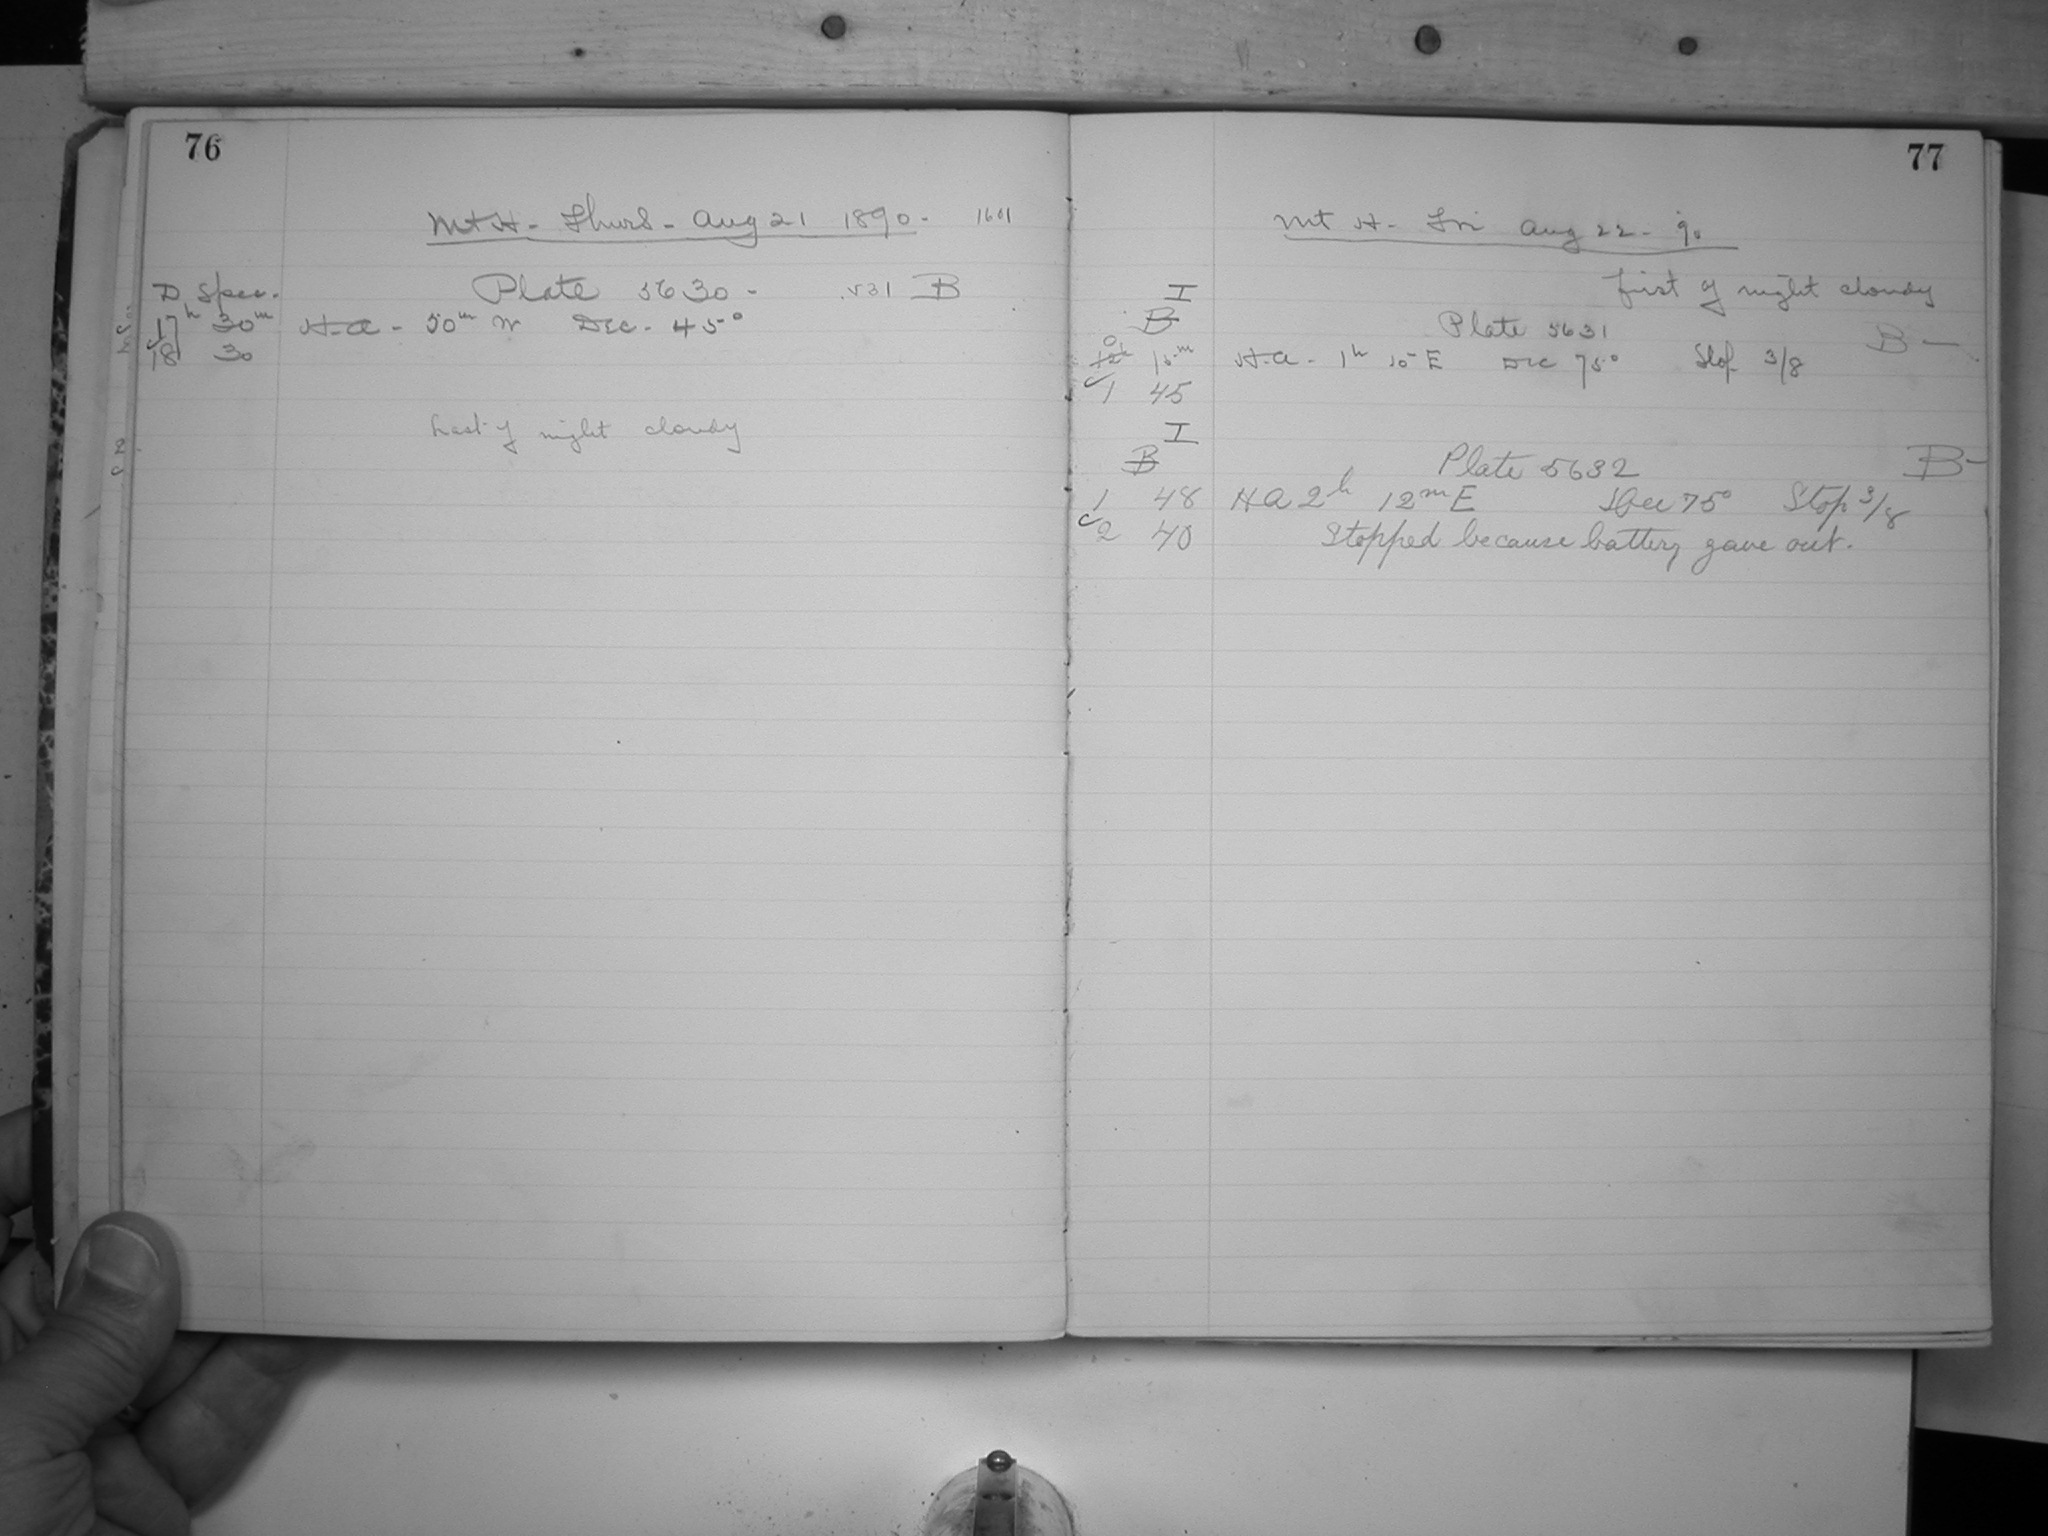 76
Mt H - Thurs - Aug 21 1890 - 1601
D Spec. Plate 5630 - B
17h 30m H.a - 50m W Dec - 45°
18 30
Last of night cloudy
77
Mt H - Fri Aug 22 - 90
first of night cloudy
I
B Plate 5631 B -
0
12h 15m H.a - 1h 10m E Dec 75° Stop 3/8
1 45
I
B Plate 5632 B -
1 48 H A 2h 12m E Dec 75° Stop 3/8
2 40 Stopped because battery gave out.